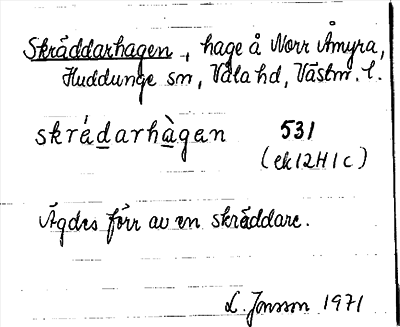 Skräddarhagen, hage å Norr Åmyra,
Huddunge sn, Våla hd, Västm. l.
skrä́darhà̱gan 531
(ek 12H1c)
Ägdes förr av en skräddare.
L. Jonsson 1971